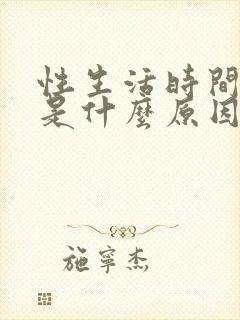 性生活時間
是什麼原因
施寧杰